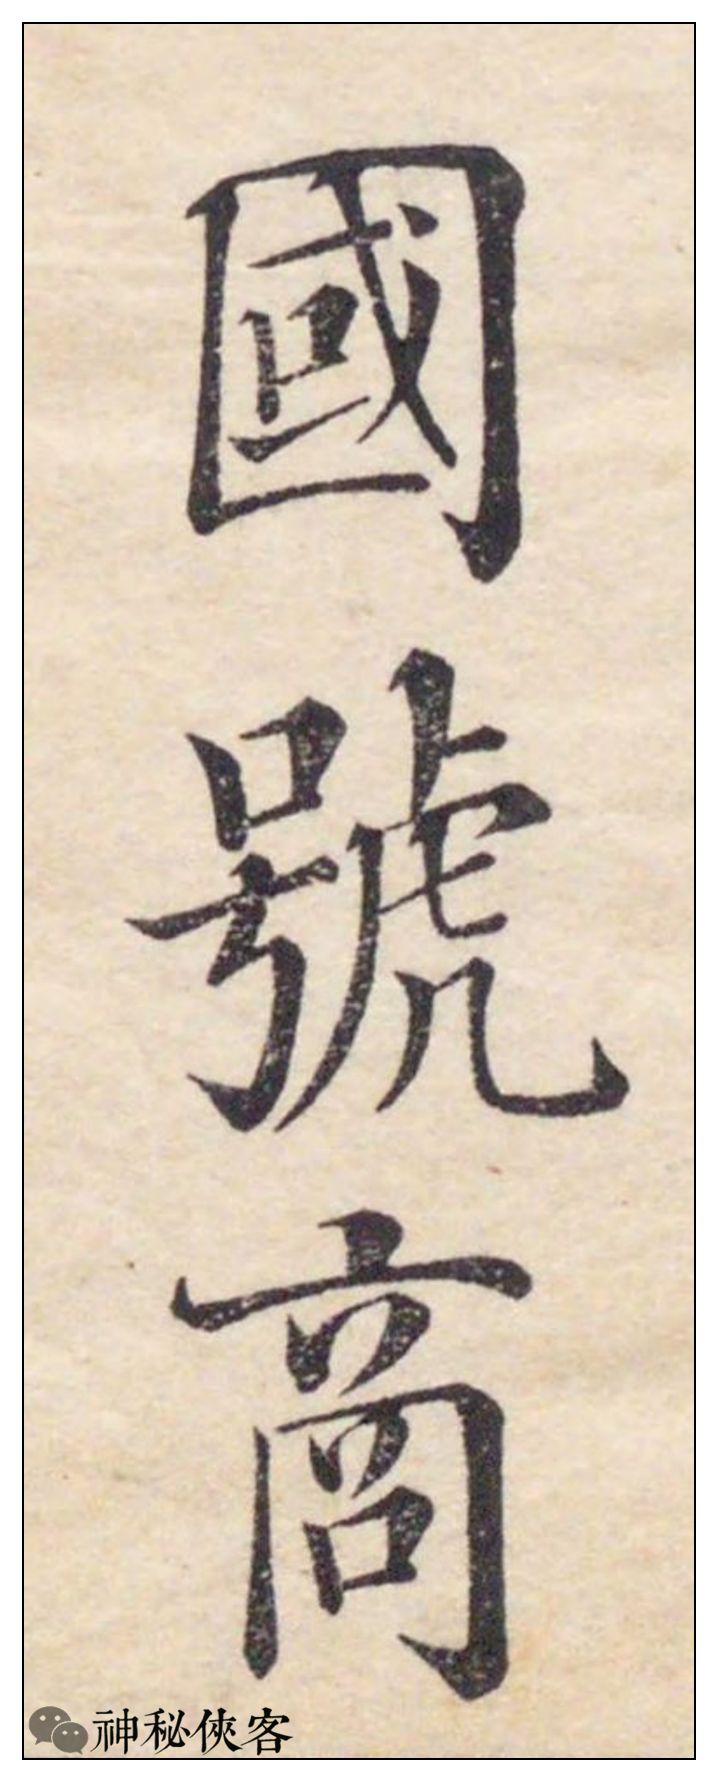 國號商
神秘俠客